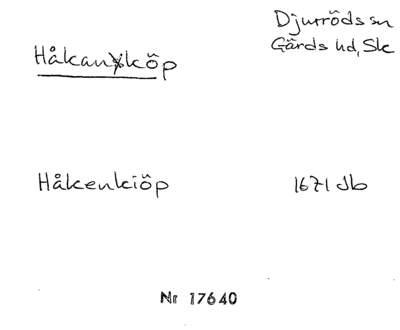 Håkanköp
Djurröds sn
Gärds hd, Sk
Håkenkiöp
1671 Jb
Nr 17640